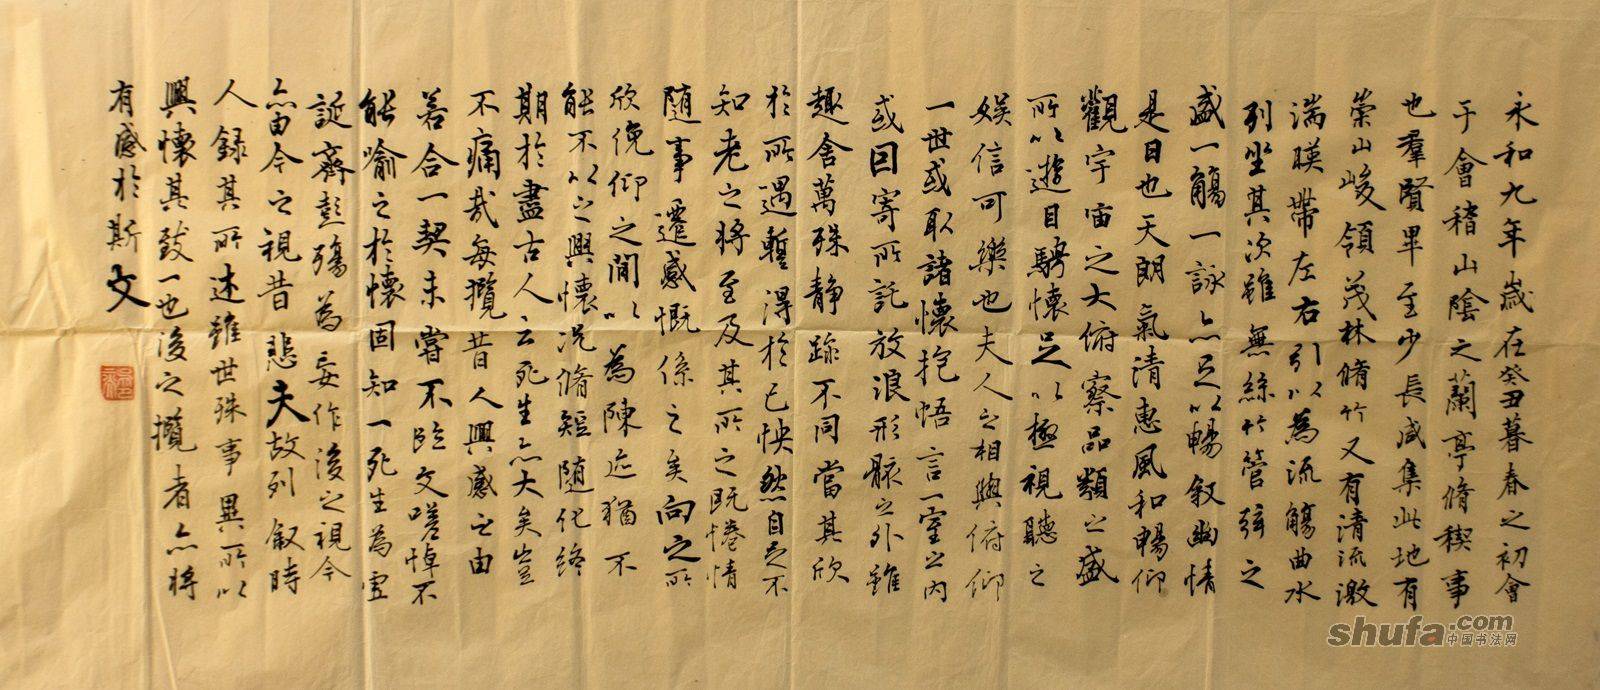 永和九年歲在癸丑暮春之初會
于會稽山陰之蘭亭脩稧事
也羣賢畢至少長咸集此地有
崇山峻領茂林脩竹又有清流激
湍暎帶左右引以為流觴曲水
列坐其次雖無絲竹管弦之
盛一觴一詠亦足以暢叙幽情
是日也天朗氣清惠風和暢仰
觀宇宙之大俯察品類之盛
所以遊目騁懷足以極視聽之
娛信可樂也夫人之相與俯仰
一世或取諸懷抱悟言一室之內
或因寄所託放浪形骸之外雖
趣舍萬殊靜躁不同當其欣
於所遇暫得於己怏然自足不
知老之將至及其所之既惓情
隨事遷感慨係之矣向之所
欣俛仰之閒以為陳迹猶不
能不以之興懷況脩短隨化終
期於盡古人云死生亦大矣豈
不痛哉每攬昔人興感之由
若合一契未嘗不臨文嗟悼不
能喻之於懷固知一死生為虛
誕齊彭殤為妄作後之視今
亦由今之視昔悲夫故列叙時
人錄其所述雖世殊事異所以
興懷其致一也後之攬者亦將
有感於斯文
shufa.com
中国书法网